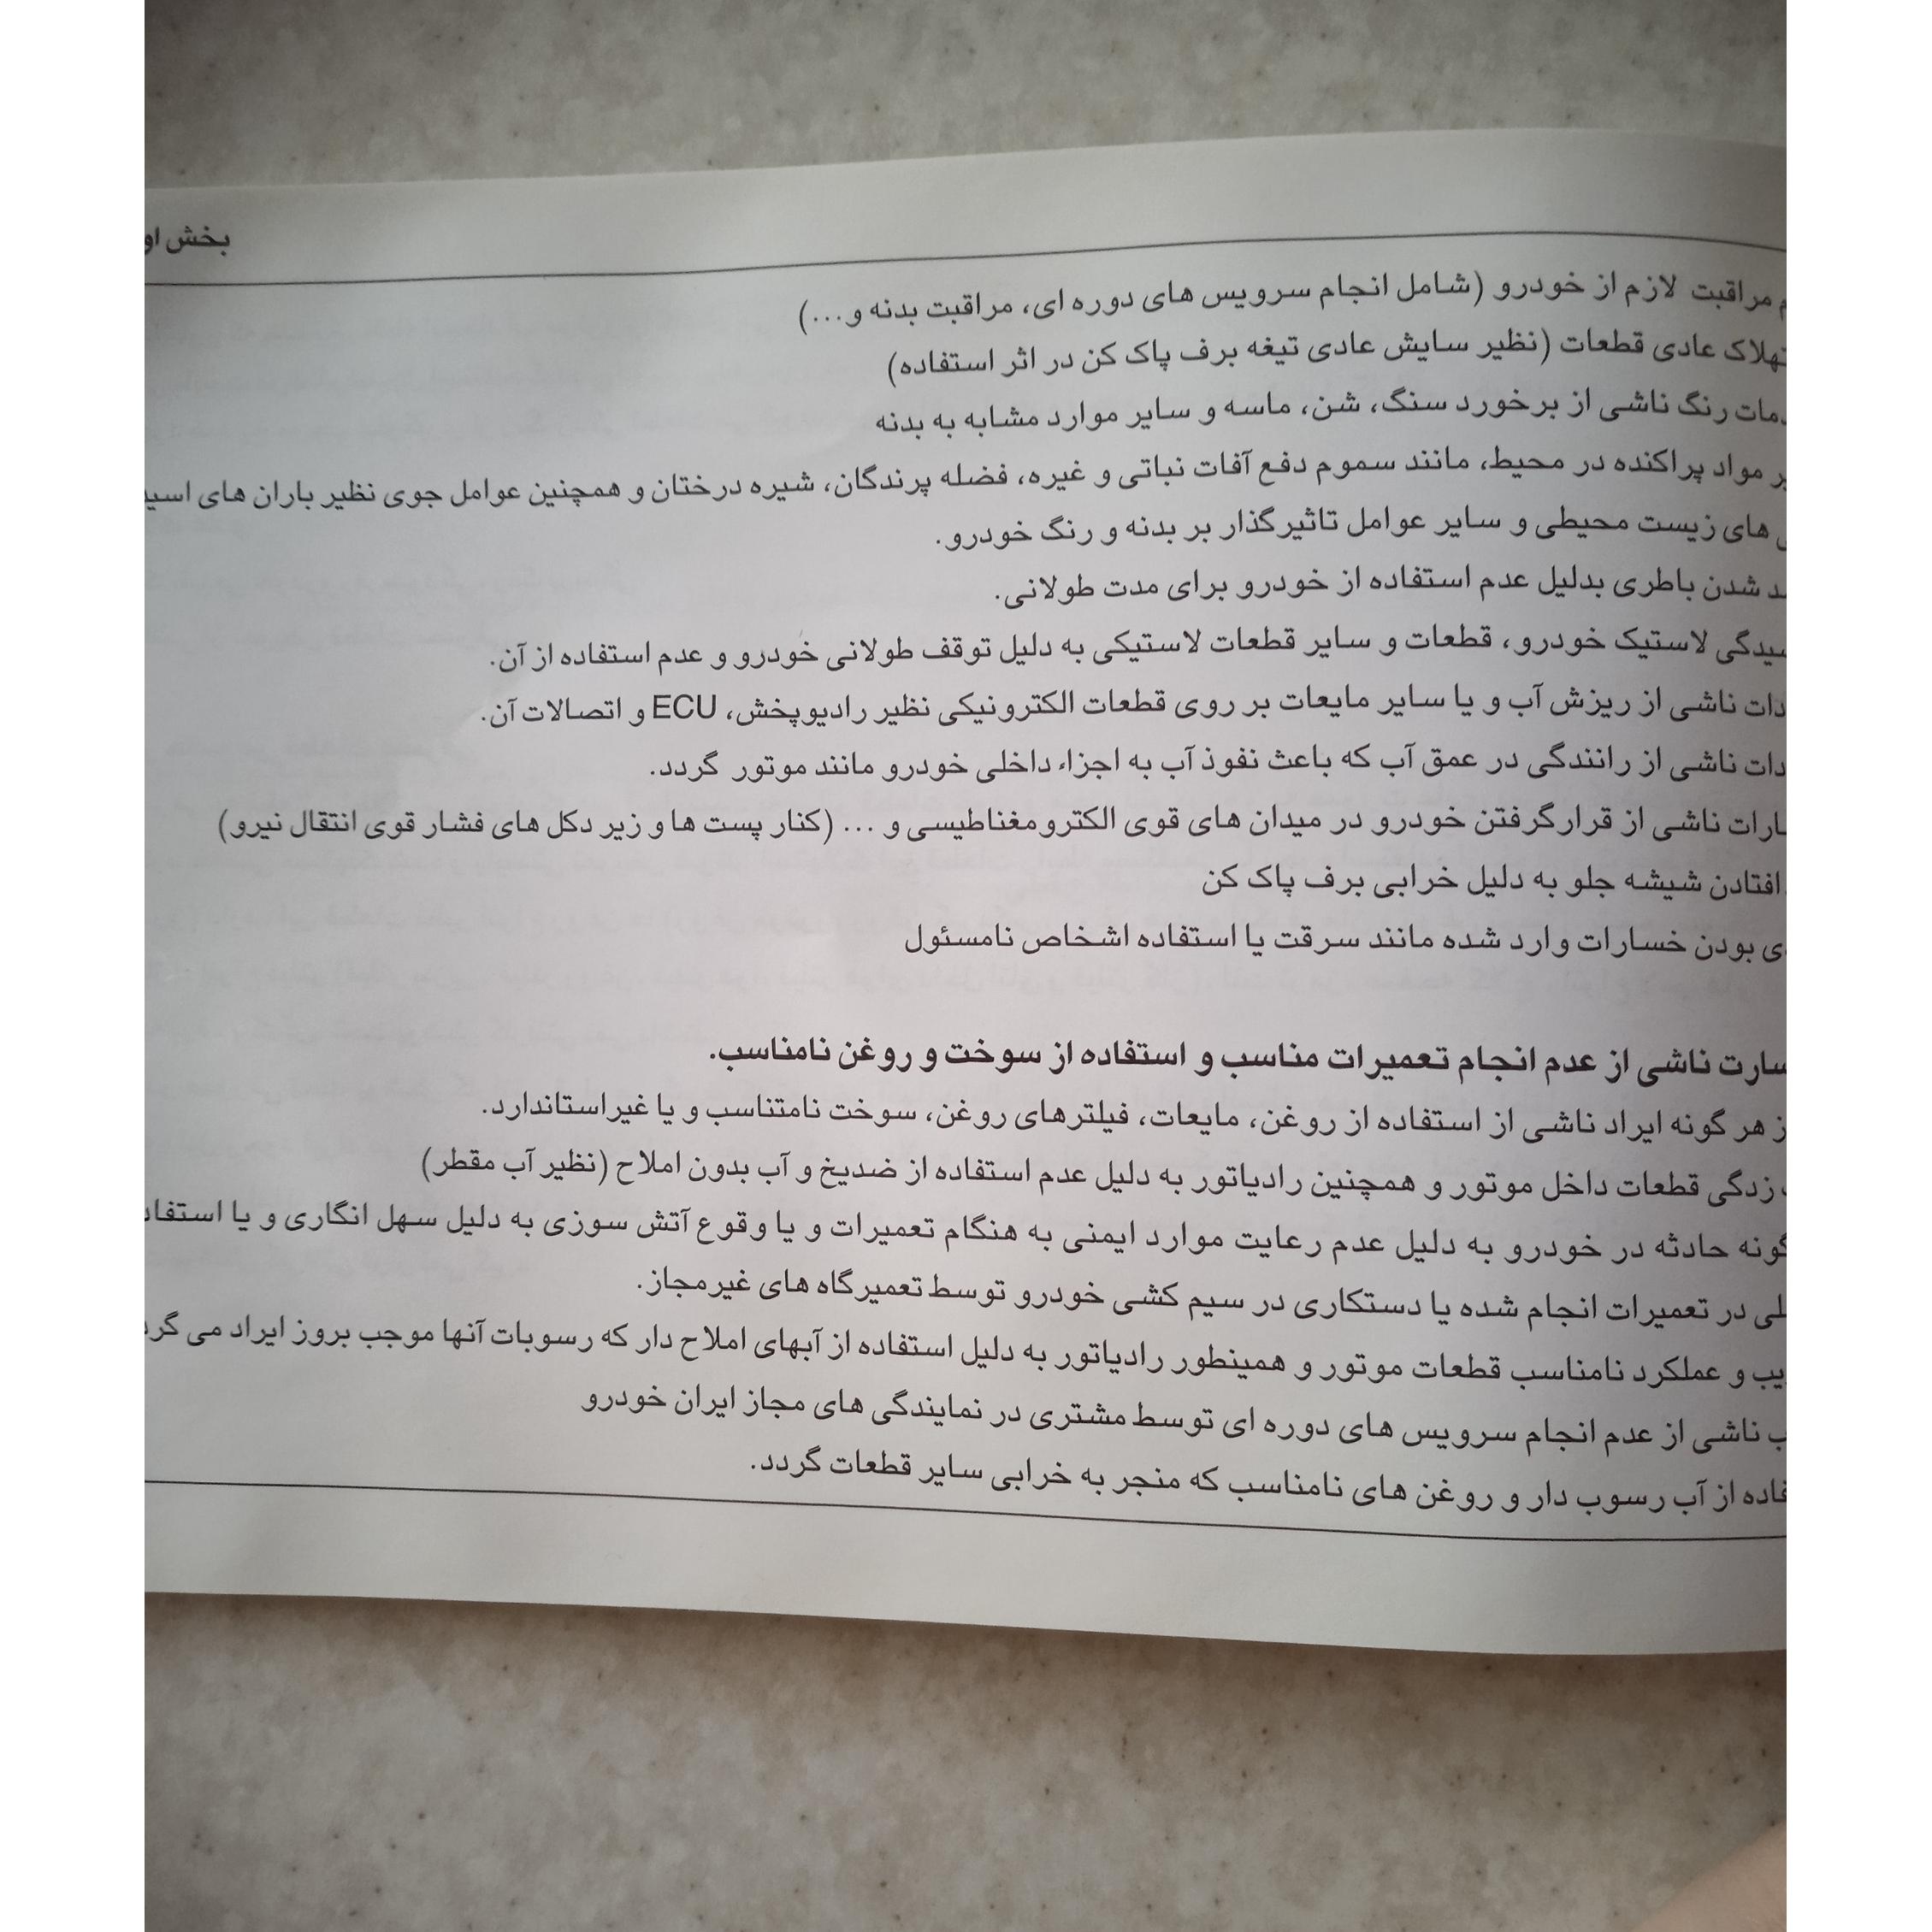 بخش
مراقبت لازم از خودرو (شامل انجام سرویس های دوره ای، مراقبت بدنه و...)
عادی قطعات (نظیر سایش عادی تیغه برف پاک کن در اثر استفاده)
رنگ ناشی از برخورد سنگ، شن، ماسه و سایر موارد مشابه به بدنه
مواد پراکنده در محیط، مانند سموم دفع آفات نباتی و غیره، فضله پرندگان، شیره درختان و همچنین عوامل جوی نظیر باران های
های زیست محیطی و سایر عوامل تاثیرگذار بر بدنه و رنگ خودرو.
شدن باطری بدلیل عدم استفاده از خودرو برای مدت طولانی.
لاستیک خودرو، قطعات و سایر قطعات لاستیکی به دلیل توقف طولانی خودرو و عدم استفاده از آن.
ناشی از ریزش آب و یا سایر مایعات بر روی قطعات الکترونیکی نظیر رادیوپخش، ECU و اتصالات آن.
ناشی از رانندگی در عمق آب که باعث نفوذ آب به اجزاء داخلی خودرو مانند موتور گردد.
ناشی از قرارگرفتن خودرو در میدان های قوی الکترومغناطیسی و ... (کنار پست ها و زیر دکل های فشار قوی انتقال نیرو)
افتادن شیشه جلو به دلیل خرابی برف پاک کن
بودن خسارات وارد شده مانند سرقت یا استفاده اشخاص نامسئول
ناشی از عدم انجام تعمیرات مناسب و استفاده از سوخت و روغن نامناسب.
هر گونه ایراد ناشی از استفاده از روغن، مایعات، فیلترهای روغن، سوخت نامتناسب و یا غیراستاندارد.
زدگی قطعات داخل موتور و همچنین رادیاتور به دلیل عدم استفاده از ضدیخ و آب بدون املاح (نظیر آب مقطر)
گونه حادثه در خودرو به دلیل عدم رعایت موارد ایمنی به هنگام تعمیرات و یا وقوع آتش سوزی به دلیل سهل انگاری و یا
در تعمیرات انجام شده یا دستکاری در سیم کشی خودرو توسط تعمیرگاه های غیرمجاز.
و عملکرد نامناسب قطعات موتور و همینطور رادیاتور به دلیل استفاده از آبهای املاح دار که رسوبات آنها موجب بروز ایراد می
ناشی از عدم انجام سرویس های دوره ای توسط مشتری در نمایندگی های مجاز ایران خودرو
از آب رسوب دار و روغن های نامناسب که منجر به خرابی سایر قطعات گردد.